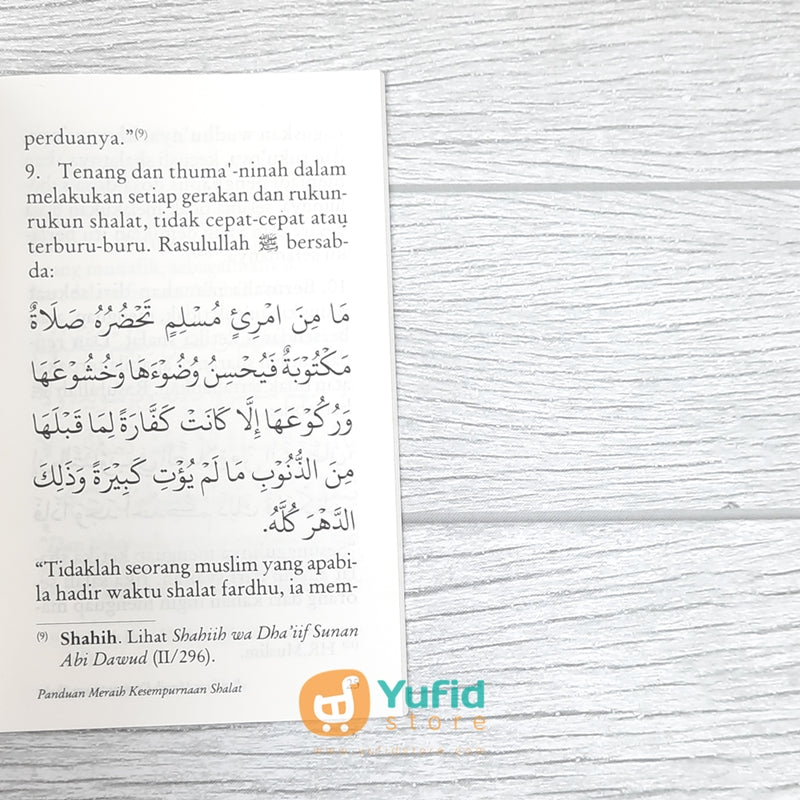 perduanya.”(9)
9. Tenang dan thuma'-ninah dalam
melakukan setiap gerakan dan rukun-
rukun shalat, tidak cepat-cepat atau
terburu-buru. Rasulullah ﷺ bersab-
da:
مَا مِنَ امْرِئٍ مُسْلِمٍ تَحْضُرُهُ صَلَاةٌ
مَكْتُوْبَةٌ فَيُحْسِنُ وُضُوْءَهَا وَخُشُوْعَهَا
وَرُكُوْعَهَا إِلَّا كَانَتْ كَفَّارَةً لِمَا قَبْلَهَا
مِنَ الذُّنُوْبِ مَا لَمْ يُؤْتِ كَبِيْرَةً وَذَلِكَ
الدَّهْرَ كُلَّهُ.
“Tidaklah seorang muslim yang apabi-
la hadir waktu shalat fardhu, ia mem-
(9) Shahih. Lihat Shahiih wa Dha'iif Sunan
Abi Dawud (II/296).
Panduan Meraih Kesempurnaan Shalat
Yufid
store